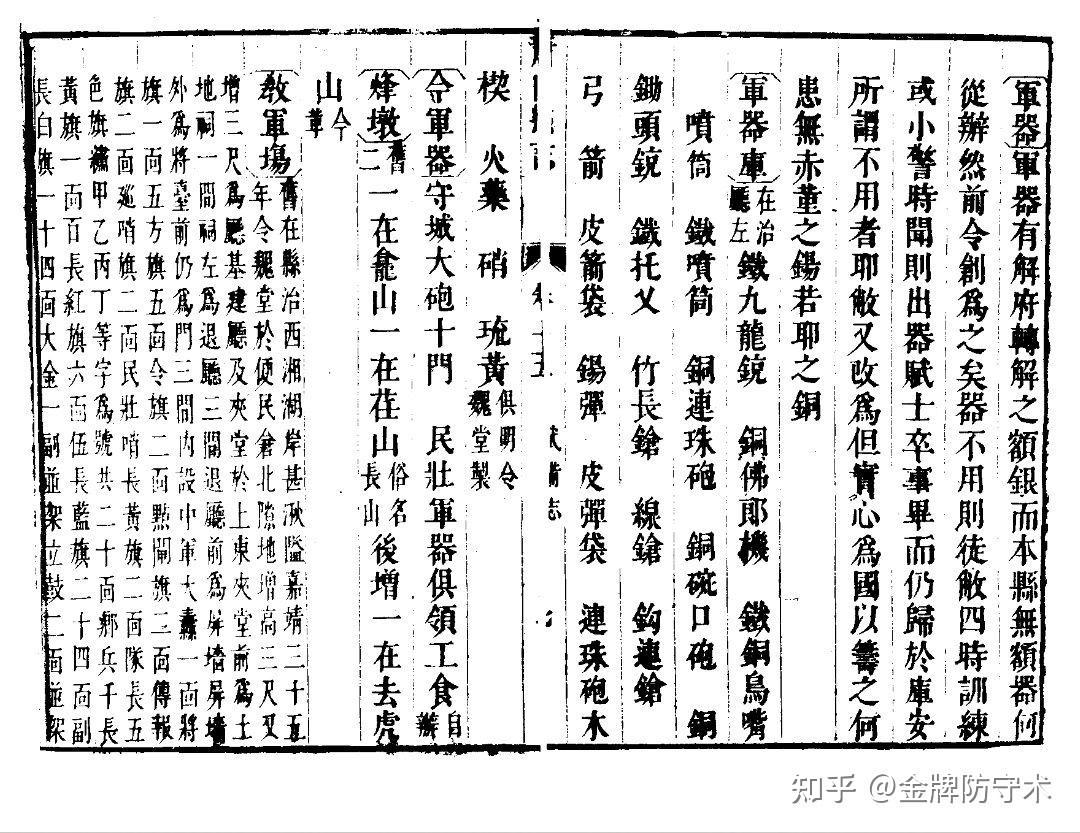 軍器軍器有解府轉解之額銀而本縣無額器何
從辦然前令創為之矣器不用則徒敝四時訓練
或小警時聞則出器賦士卒事畢而仍歸於庫安
所謂不用者耶敝又改為但實心為國以籌之何
患無赤堇之錫若耶之銅
軍器庫在治廳左鐵九龍銃 銅佛郎機 鐵銅鳥嘴
噴筒 鐵噴筒 銅連珠砲 銅碗口砲 銅
鋤頭銃 鐵托叉 竹長鎗 線鎗 鈎連鎗
弓 箭 皮箭袋 錫彈 皮彈袋 連珠砲木
卷十五 武備志 七
楔 火藥 硝 琉黃俱明令魏堂製
今軍器守城大砲十門 民壯軍器俱領工食自辦
烽墩舊二一在龕山一在茬山俗名長山後增一在去虎
山今葦
教軍塲舊在縣治西湘湖岸甚湫隘嘉靖三十五
年令魏堂於便民倉北隙地增高三尺又
增三尺為廳基建廳及夾堂於上東夾堂前為土
地祠一間祠左為退廳三間退廳前為屏墻屏墻
外為將臺前仍為門三間內設中軍大纛一面將
旗一面五方旗五面令旗二面點閘旗三面傳報
旗二面廵哨旗二面民壯哨長黃旗二面隊長五
色旗繡甲乙丙丁等字為號共二十面鄉兵千長
黃旗一面百長紅旗六面伍長藍旗二十四面副
長白旗一十四面大金一副並架立鼓二面並架
知乎 @金牌防守术